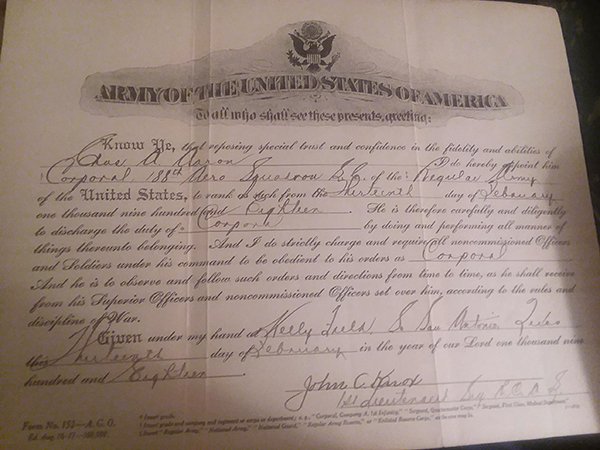 ARMY OF THE UNITED STATES OF AMERICA
To all who shall see these presents, greeting:
Know Ye, that reposing special trust and confidence in the fidelity and abilities of
A. I do hereby appoint him
Corporal 188th Aero Squadron S.C. of the Regular Army
of the United States, to rank as such from the thirteenth day of February
one thousand nine hundred and Eighteen. He is therefore carefully and diligently
to discharge the duty of Corporal by doing and performing all manner of
things thereunto belonging. And I do strictly charge and require all noncommissioned Officers
and Soldiers under his command to be obedient to his orders as Corporal
And he is to observe and follow such orders and directions from time to time, as he shall receive
from his Superior Officers and noncommissioned Officers set over him, according to the rules and
discipline of War.
Given under my hand at Kelly Field So San Antonio Texas
this thirteenth day of February in the year of our Lord one thousand nine
hundred and Eighteen
John C. Knox
1st Lieutenant
Form No. 153—A.G.O.